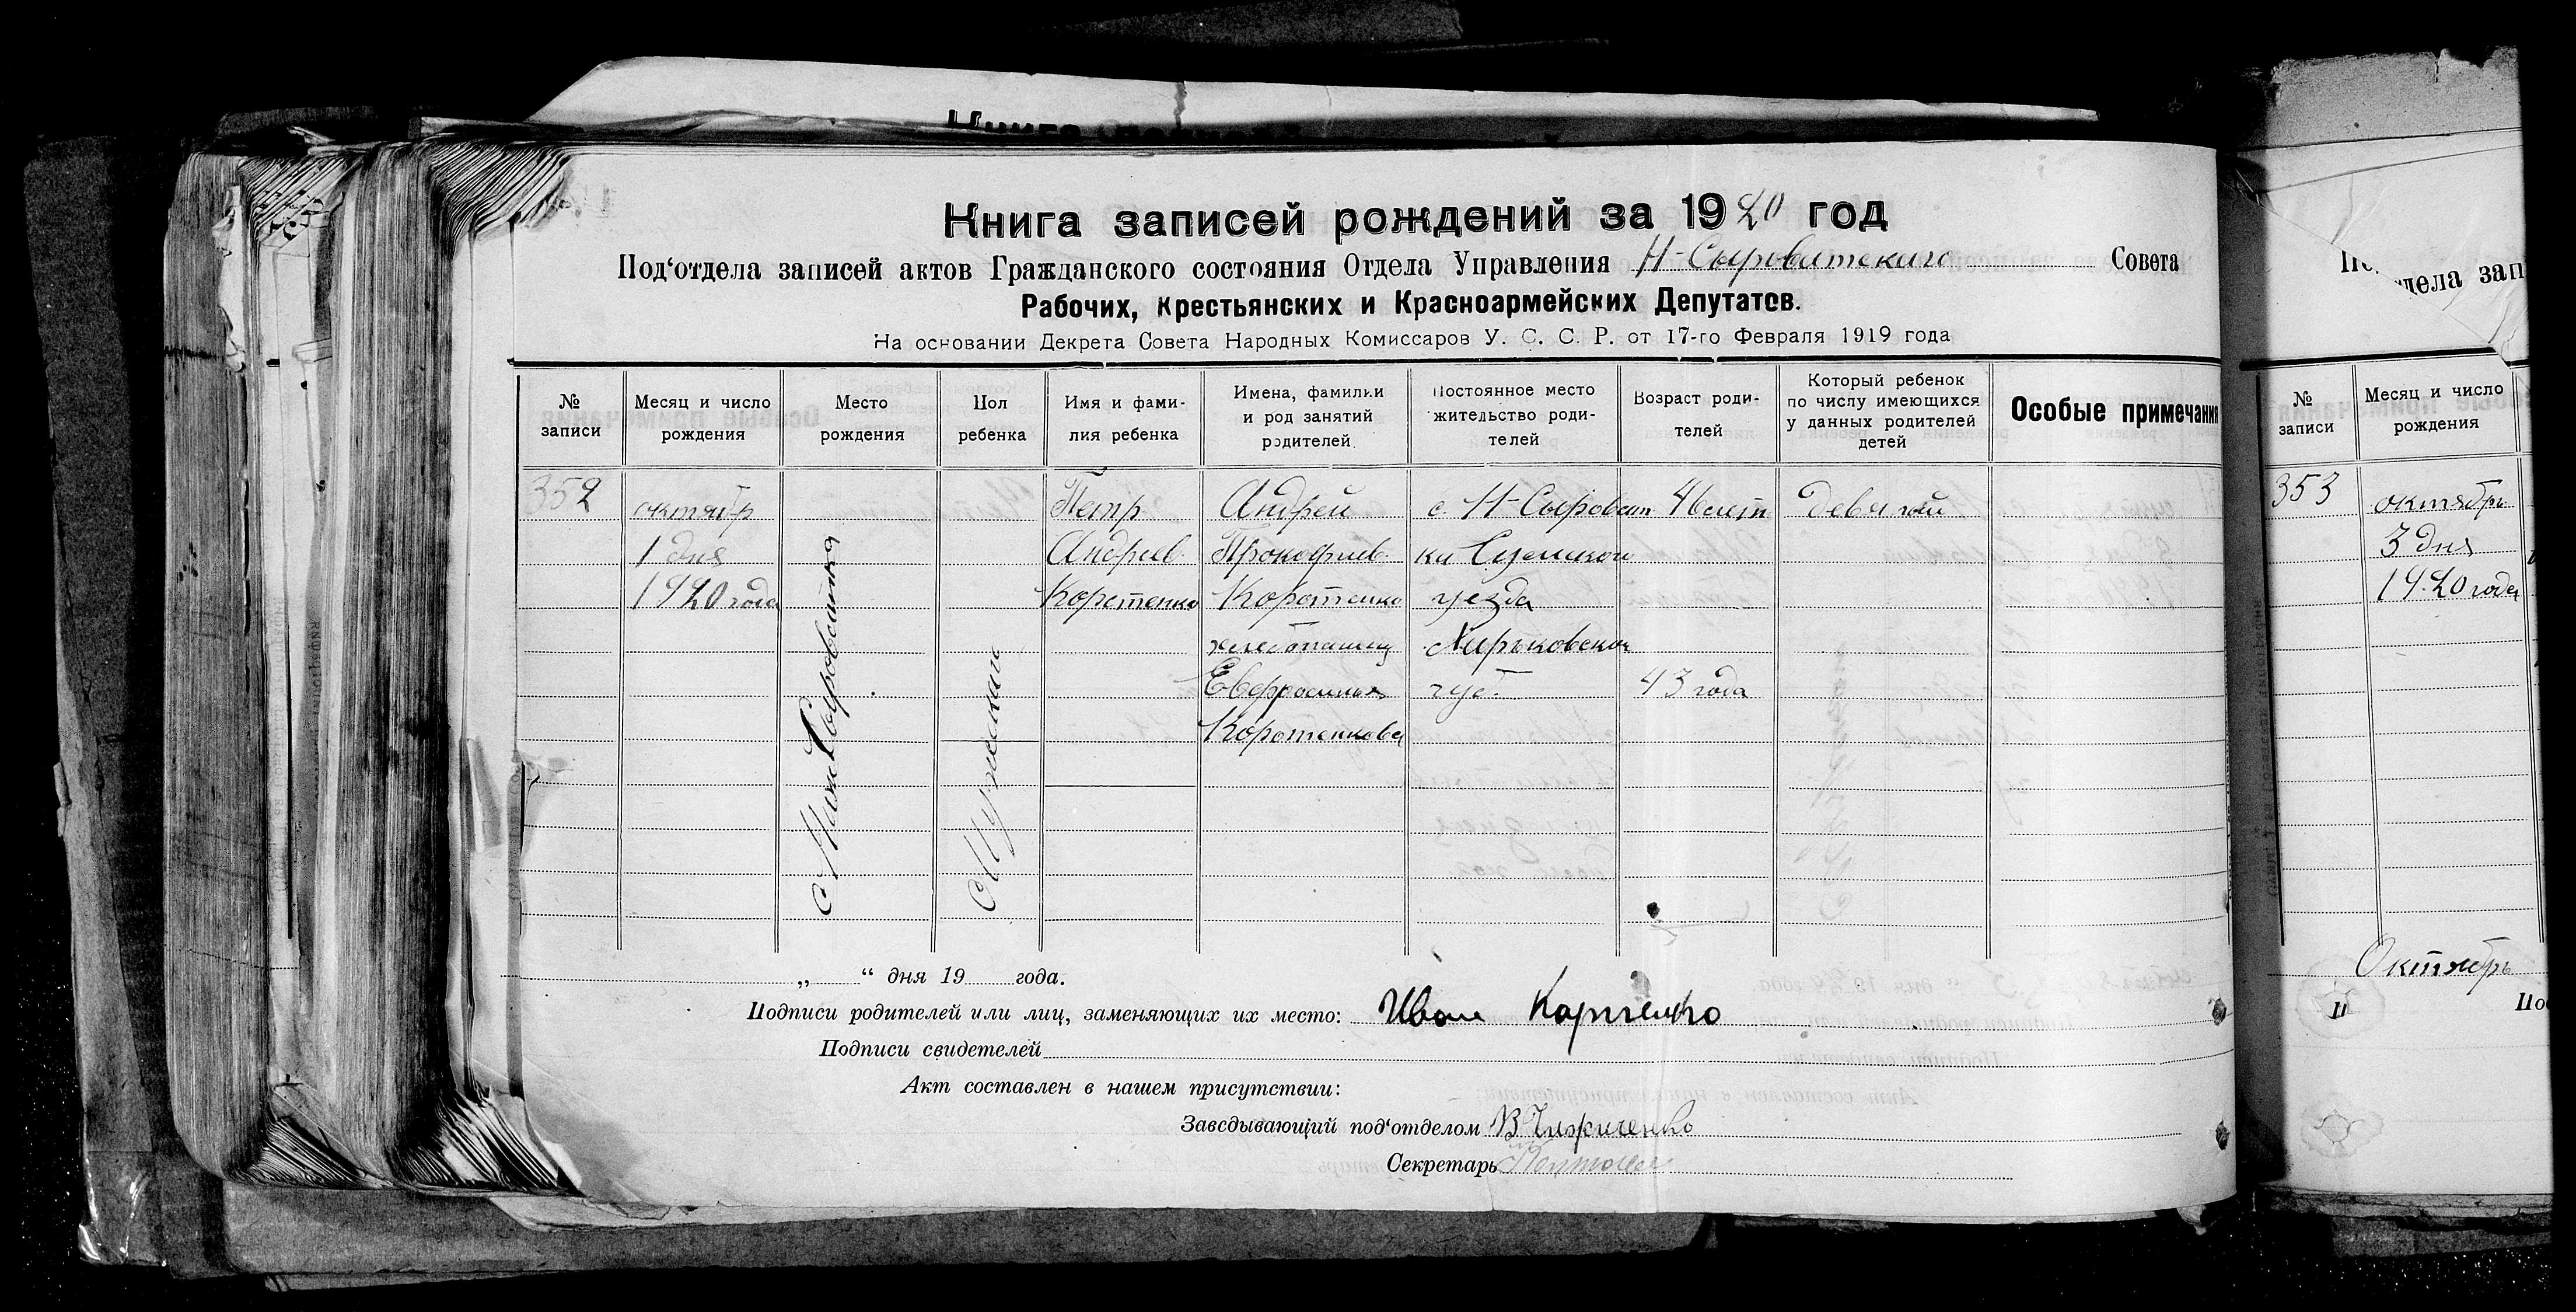 Книга записей рождений за 1920 год
Под‘отдела записей актов Гражданского состояния Отдела Управления Н-Сыроватского Совета
Рабочих, Крестьянских и Красноармейских Депутатов.
На основании Декрета Совета Народных Комиссаров У. С. С. Р. от 17-го Февраля 1919 года
№ записи
Месяц и число рождения
Место рождения
Пол ребенка
Имя и фами-
лия ребенка
Имена, фамилии
и род занятий
родителей
Постоянное место
жительство роди-
телей
Возраст роди-
телей
Который ребенок
по числу имеющихся
у данных родителей
детей
Особые примечания
352
октябр
1 дня
1920 года
Сыроватка
Мужский
Петр
Андреев
Коротенко
Андрей
Прокофиев
Коротенко
хлебопашец
Евфросиния
Коротенкова
с. Н-Сыроват
ки Сумской
уезда
Харьковской
губ.
46 лет
43 года
девятый
„ “ дня 19 года.
Подписи родителей или лиц, заменяющих их место: Иван Карпенко
Подписи свидетелей
Акт составлен в нашем присутствии:
Заведывающий под‘отделом В Чижиченко
Секретарь
дела зап
№ записи
Месяц и число
рождения
353
октябрь
3 дня
1920 года
Октябрь